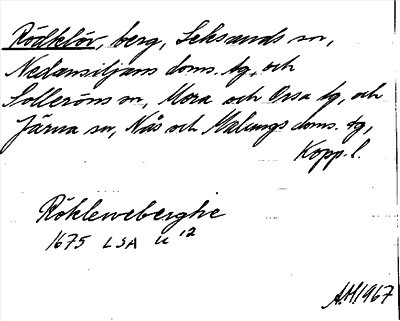 Rödklöv, berg, Leksands sn,
Nedansiljans doms. tg, och
Solleröns sn, Mora och Orsa tg, och
Järna sn, Nås och Malungs doms. tg,
Kopp. l.
Rökleweberghe
1675 LSA u 12
A.H. 1967